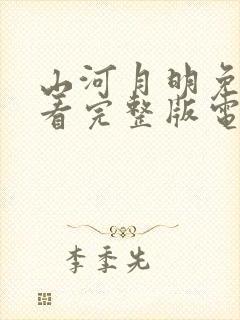 山河月明免
看完整版電
李季先